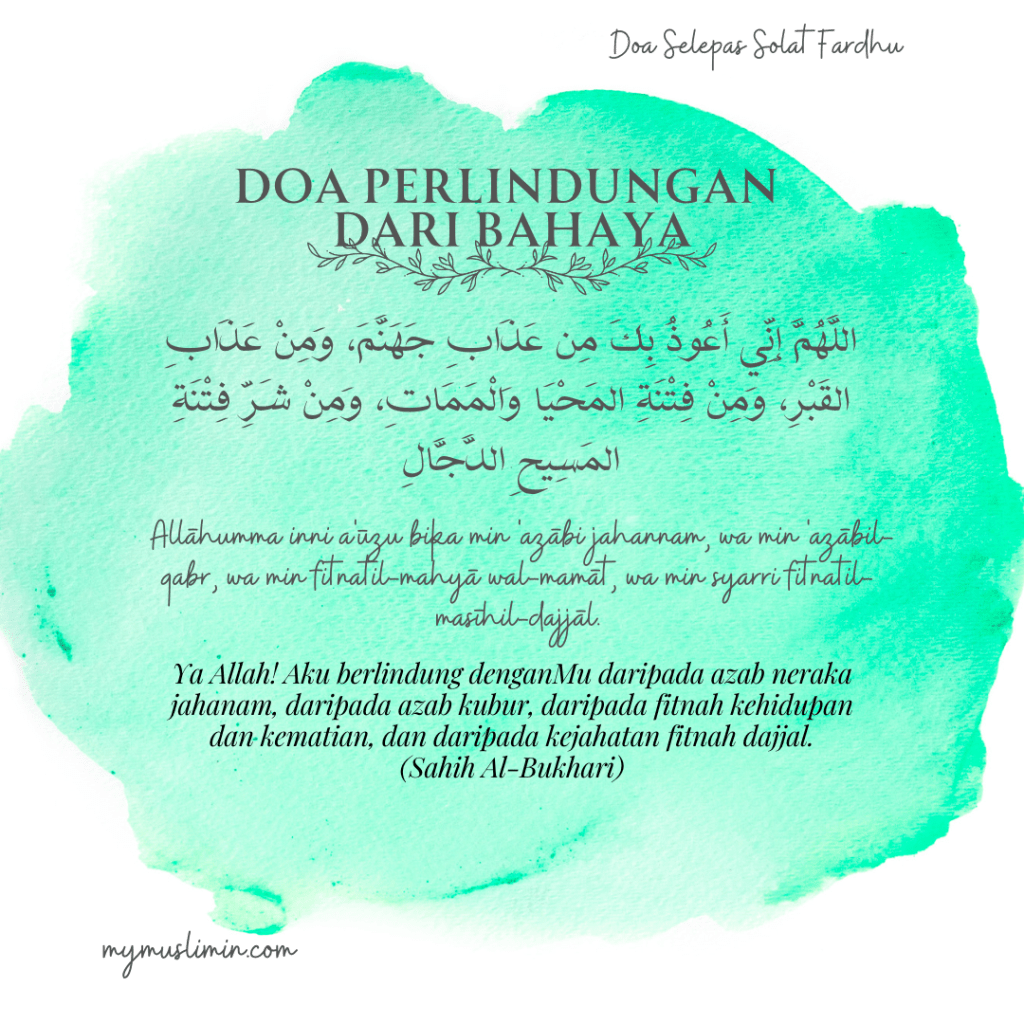 Doa Selepas Solat Fardhu
DOA PERLINDUNGAN
DARI BAHAYA
اللَّهُمَّ إِنِّي أَعُوذُ بِكَ مِن عَذَابِ جَهَنَّمَ، وَمِنْ عَذَابِ
القَبْرِ، وَمِنْ فِتْنَةِ المَحْيَا وَالْمَمَاتِ، وَمِنْ شَرِّ فِتْنَةِ
المَسِيحِ الدَّجَّالِ
Allāhumma inni a'ūzu bika min 'azābi jahannam, wa min 'azābil-
qabr, wa min fitnatil-mahyā wal-mamāt, wa min syarri fitnatil-
masīhil-dajjāl.
Ya Allah! Aku berlindung denganMu daripada azab neraka
jahanam, daripada azab kubur, daripada fitnah kehidupan
dan kematian, dan daripada kejahatan fitnah dajjal.
(Sahih Al-Bukhari)
mymuslimin.com